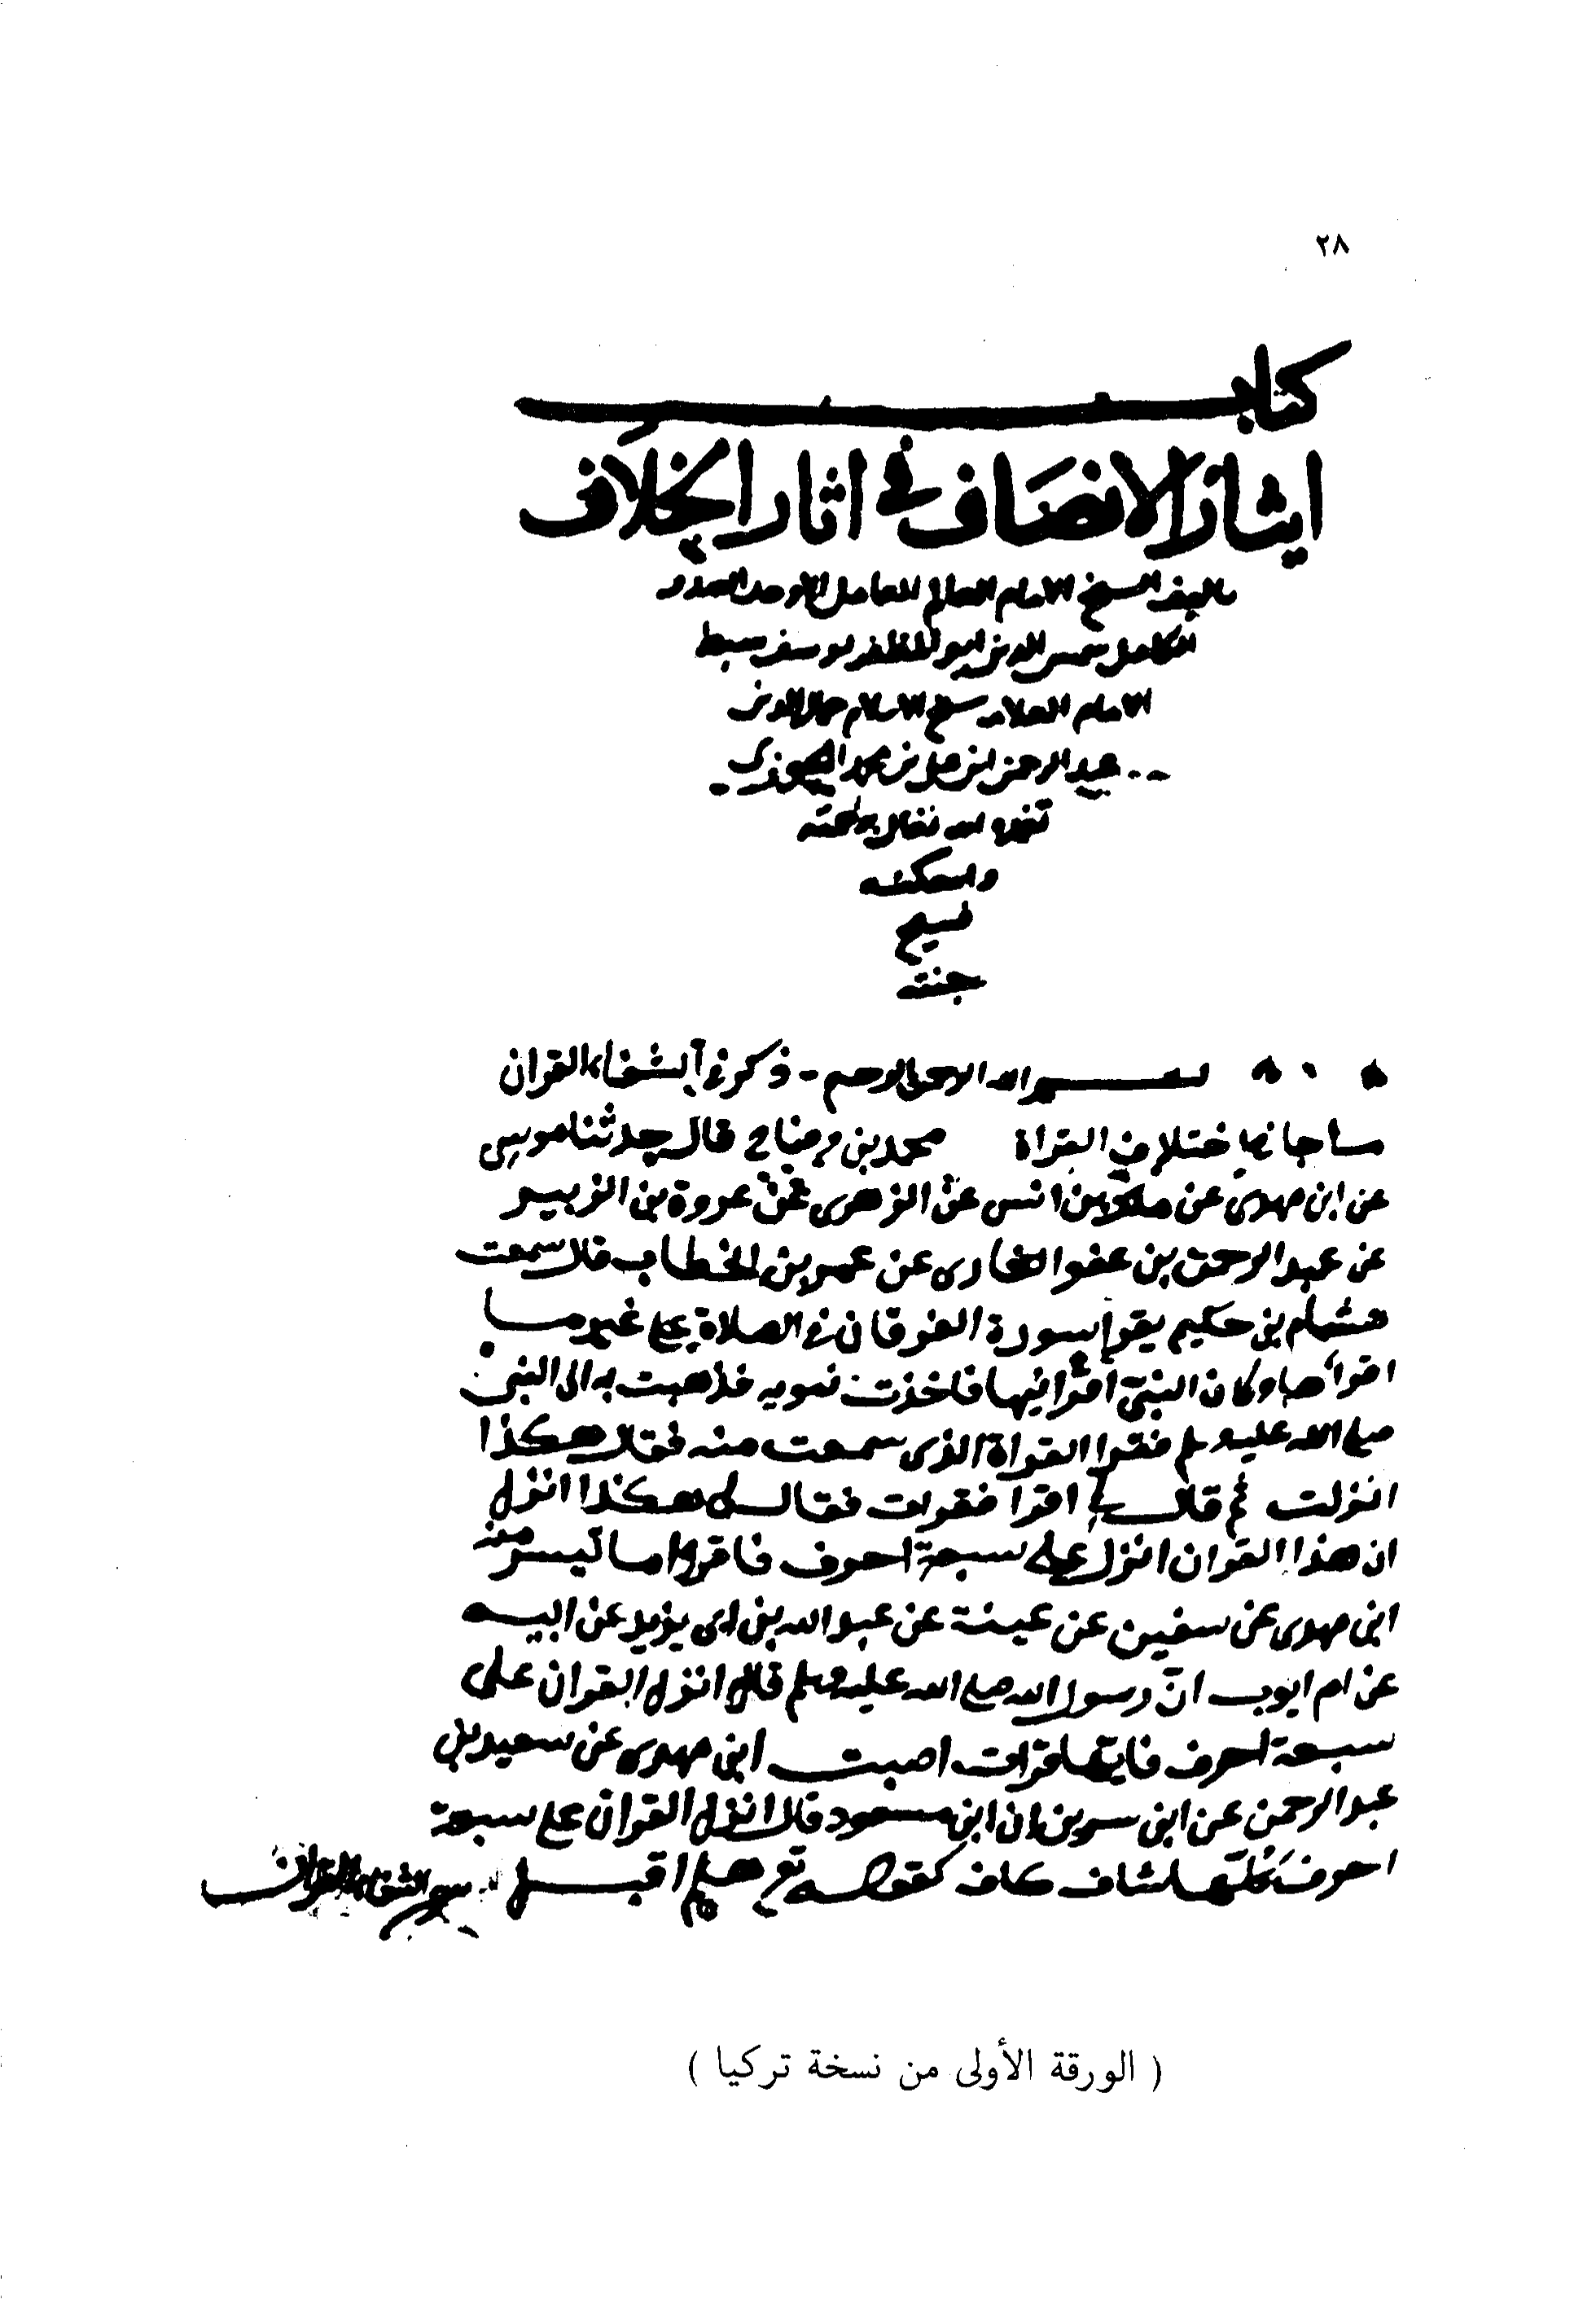 ٢٨
كتاب
ايثار الانصاف في اثار الخلاف
تاليف الشيخ الامام العالم العامل الاوحد الصدر
الكامل شمس الدين ابو المظفر يوسف سبط
الامام العلامه شيخ الاسلام جمال الدين
عبد الرحمن ابن علي بن محمد الجوزي
تغمده الله تعالى برحمته
واسكنه
فسيح
جنته
بسم الله الرحمن الرحيم - ذكر في الشفاء القران
ما جا في اختلاف القراة محمد بن وضاح قال حدثنا موسى
عن ابن مهدى عن ملك بن انس عن الزهرى عن عروة بن الزبير
عن عبد الرحمن بن عبد القارى عن عمر بن الخطاب قال سمعت
هشام بن حكيم يقرا سورة الفرقان في الصلاة على غير ما
اقراها وكان النبى اقرانيها فاخذت ثوبه فذهبت به الى النبى
صلى الله عليه وسلم فقرا القراة الذى سمعت منه فقال هكذا
انزلت ثم قال لى اقرا فقرات فقال لى هكذا انزل
ان هذا القران انزل على سبعة احرف فاقروا ما تيسر منه
ابن مهدى عن سفين عن عينة عن عبد الله بن ابى يزيد عن ابيه
عن ام ايوب انّ رسول الله صلى الله عليه وسلم قال انزل القران على
سبعة احرف فايّها قرات اصبت ابن مهدى عن سعيد بن
عبد الرحمن عن ابن سيرين ان ابن مسعود قال انزل القران على سبعة
احرف كلّها شاف كاف كقولك تع هلم اقبل
( الورقة الأولى من نسخة تركيا )